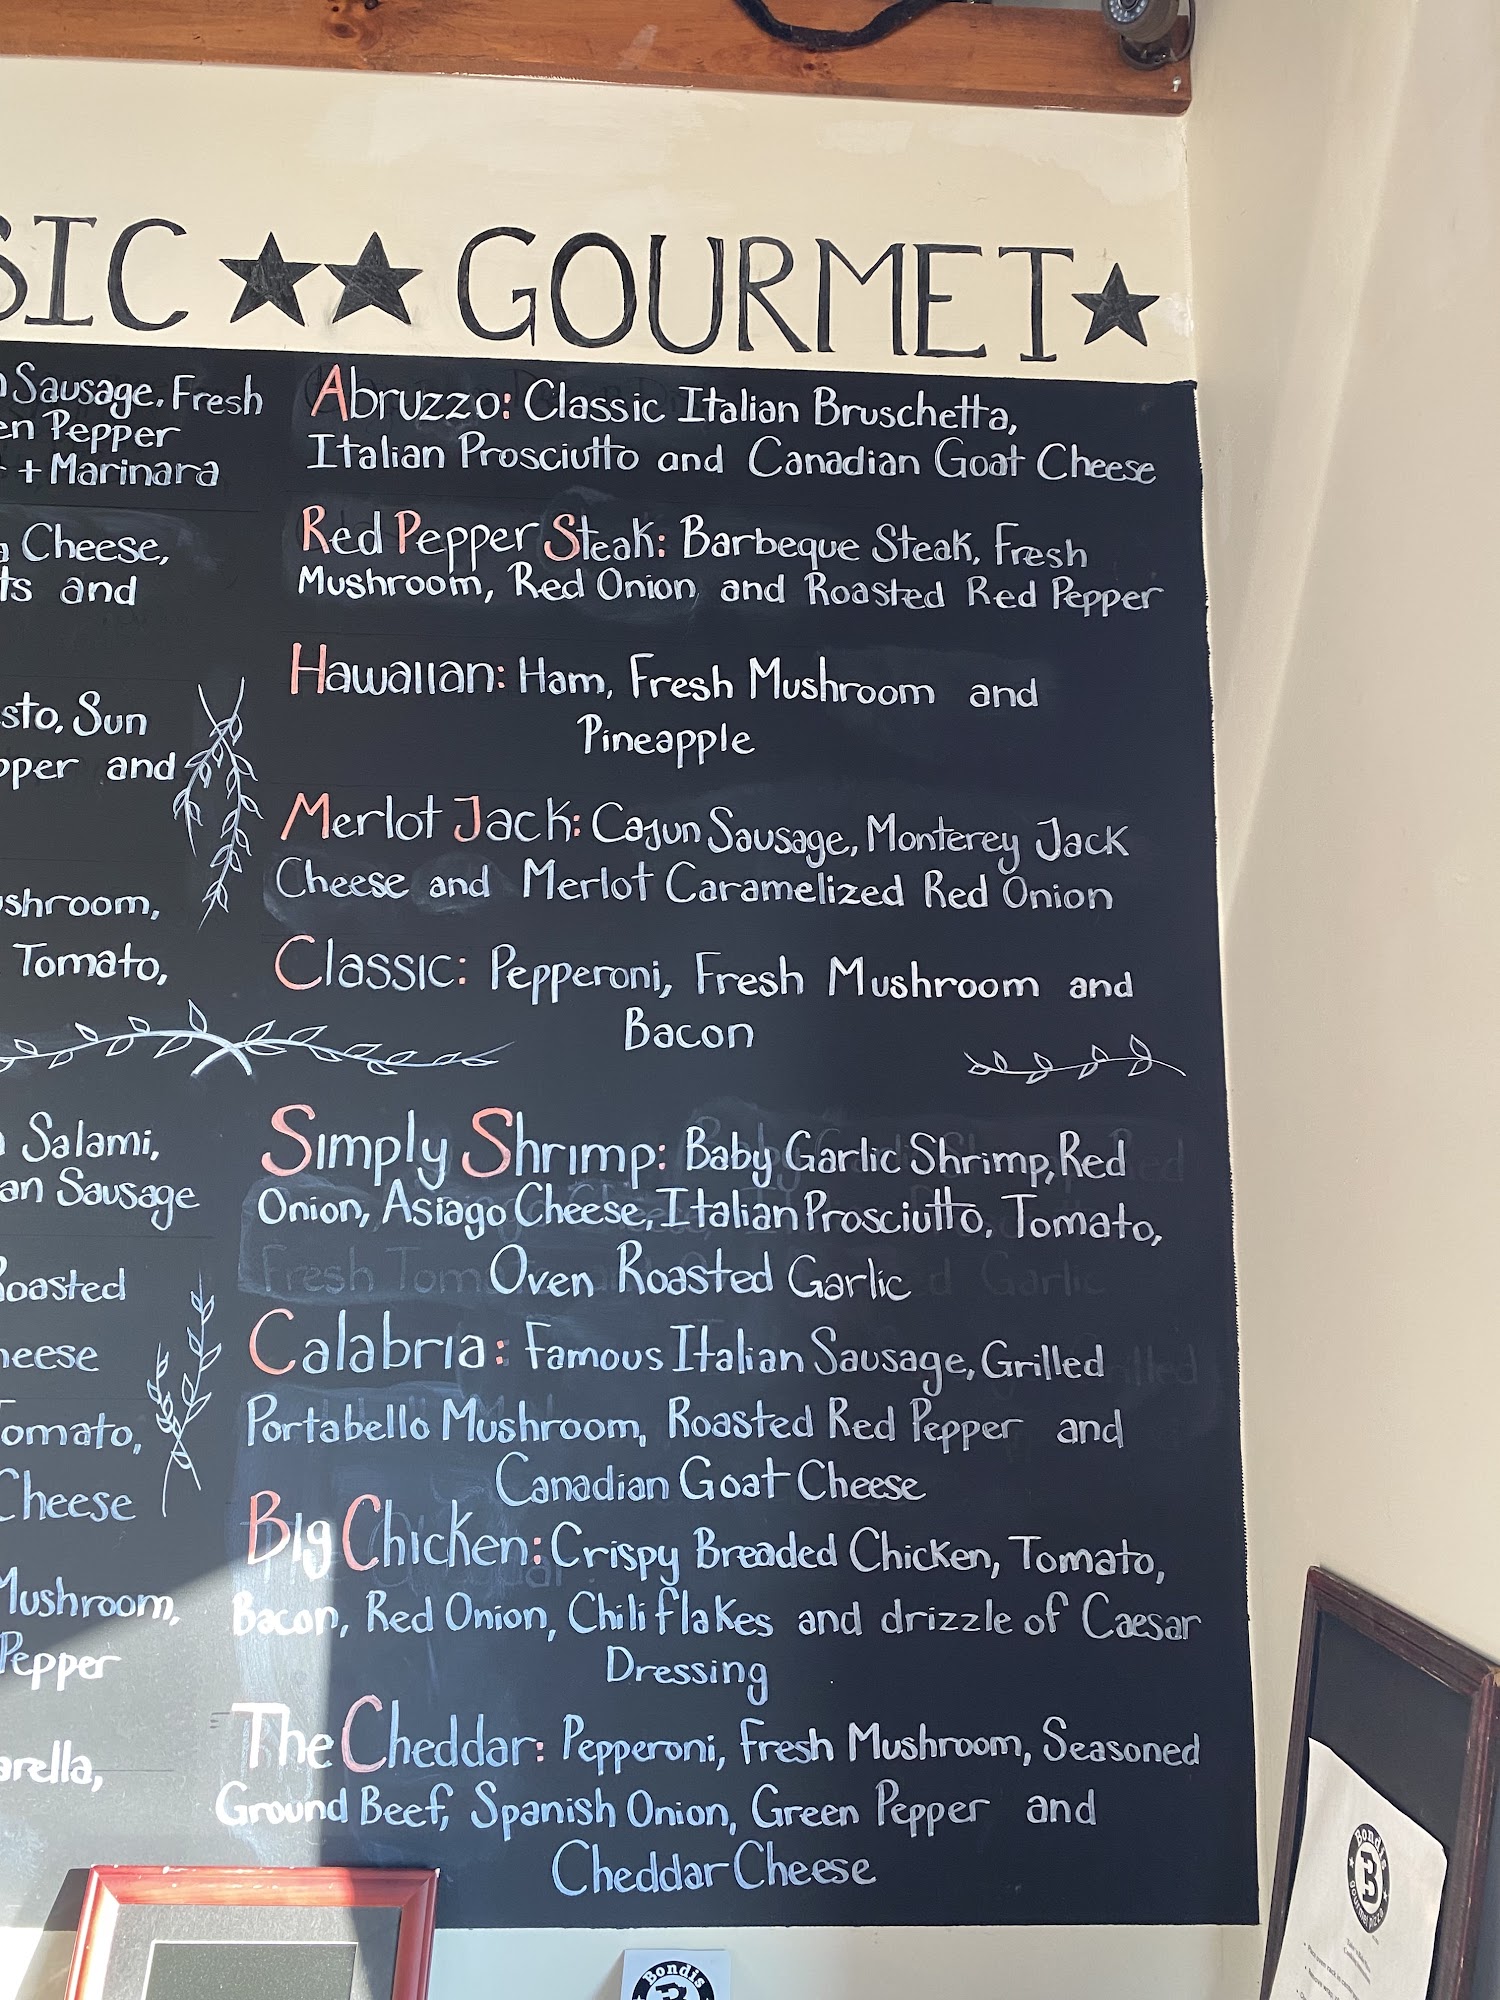 SIC ★★ GOURMET ★
Sausage, Fresh
Pepper
+ Marinara
Cheese,
and
Sun
and
Tomato,
Salami,
Sausage
Cheese
Pepper
Abruzzo: Classic Italian Bruschetta,
Italian Prosciutto and Canadian Goat Cheese
Red Pepper Steak: Barbeque Steak, Fresh
Mushroom, Red Onion and Roasted Red Pepper
Hawaiian: Ham, Fresh Mushroom and
Pineapple
Merlot Jack: Cajun Sausage, Monterey Jack
Cheese and Merlot Caramelized Red Onion
Classic: Pepperoni, Fresh Mushroom and
Bacon
Simply Shrimp: Baby Garlic Shrimp, Red
Onion, Asiago Cheese, Italian Prosciutto, Tomato,
Oven Roasted Garlic
Calabria: Famous Italian Sausage, Grilled
Portabello Mushroom, Roasted Red Pepper and
Canadian Goat Cheese
Big Chicken: Crispy Breaded Chicken, Tomato,
Bacon, Red Onion, Chili flakes and drizzle of Caesar
Dressing
The Cheddar: Pepperoni, Fresh Mushroom, Seasoned
Ground Beef, Spanish Onion, Green Pepper and
Cheddar Cheese
Bondis
B
gourmet pizza
Bondis